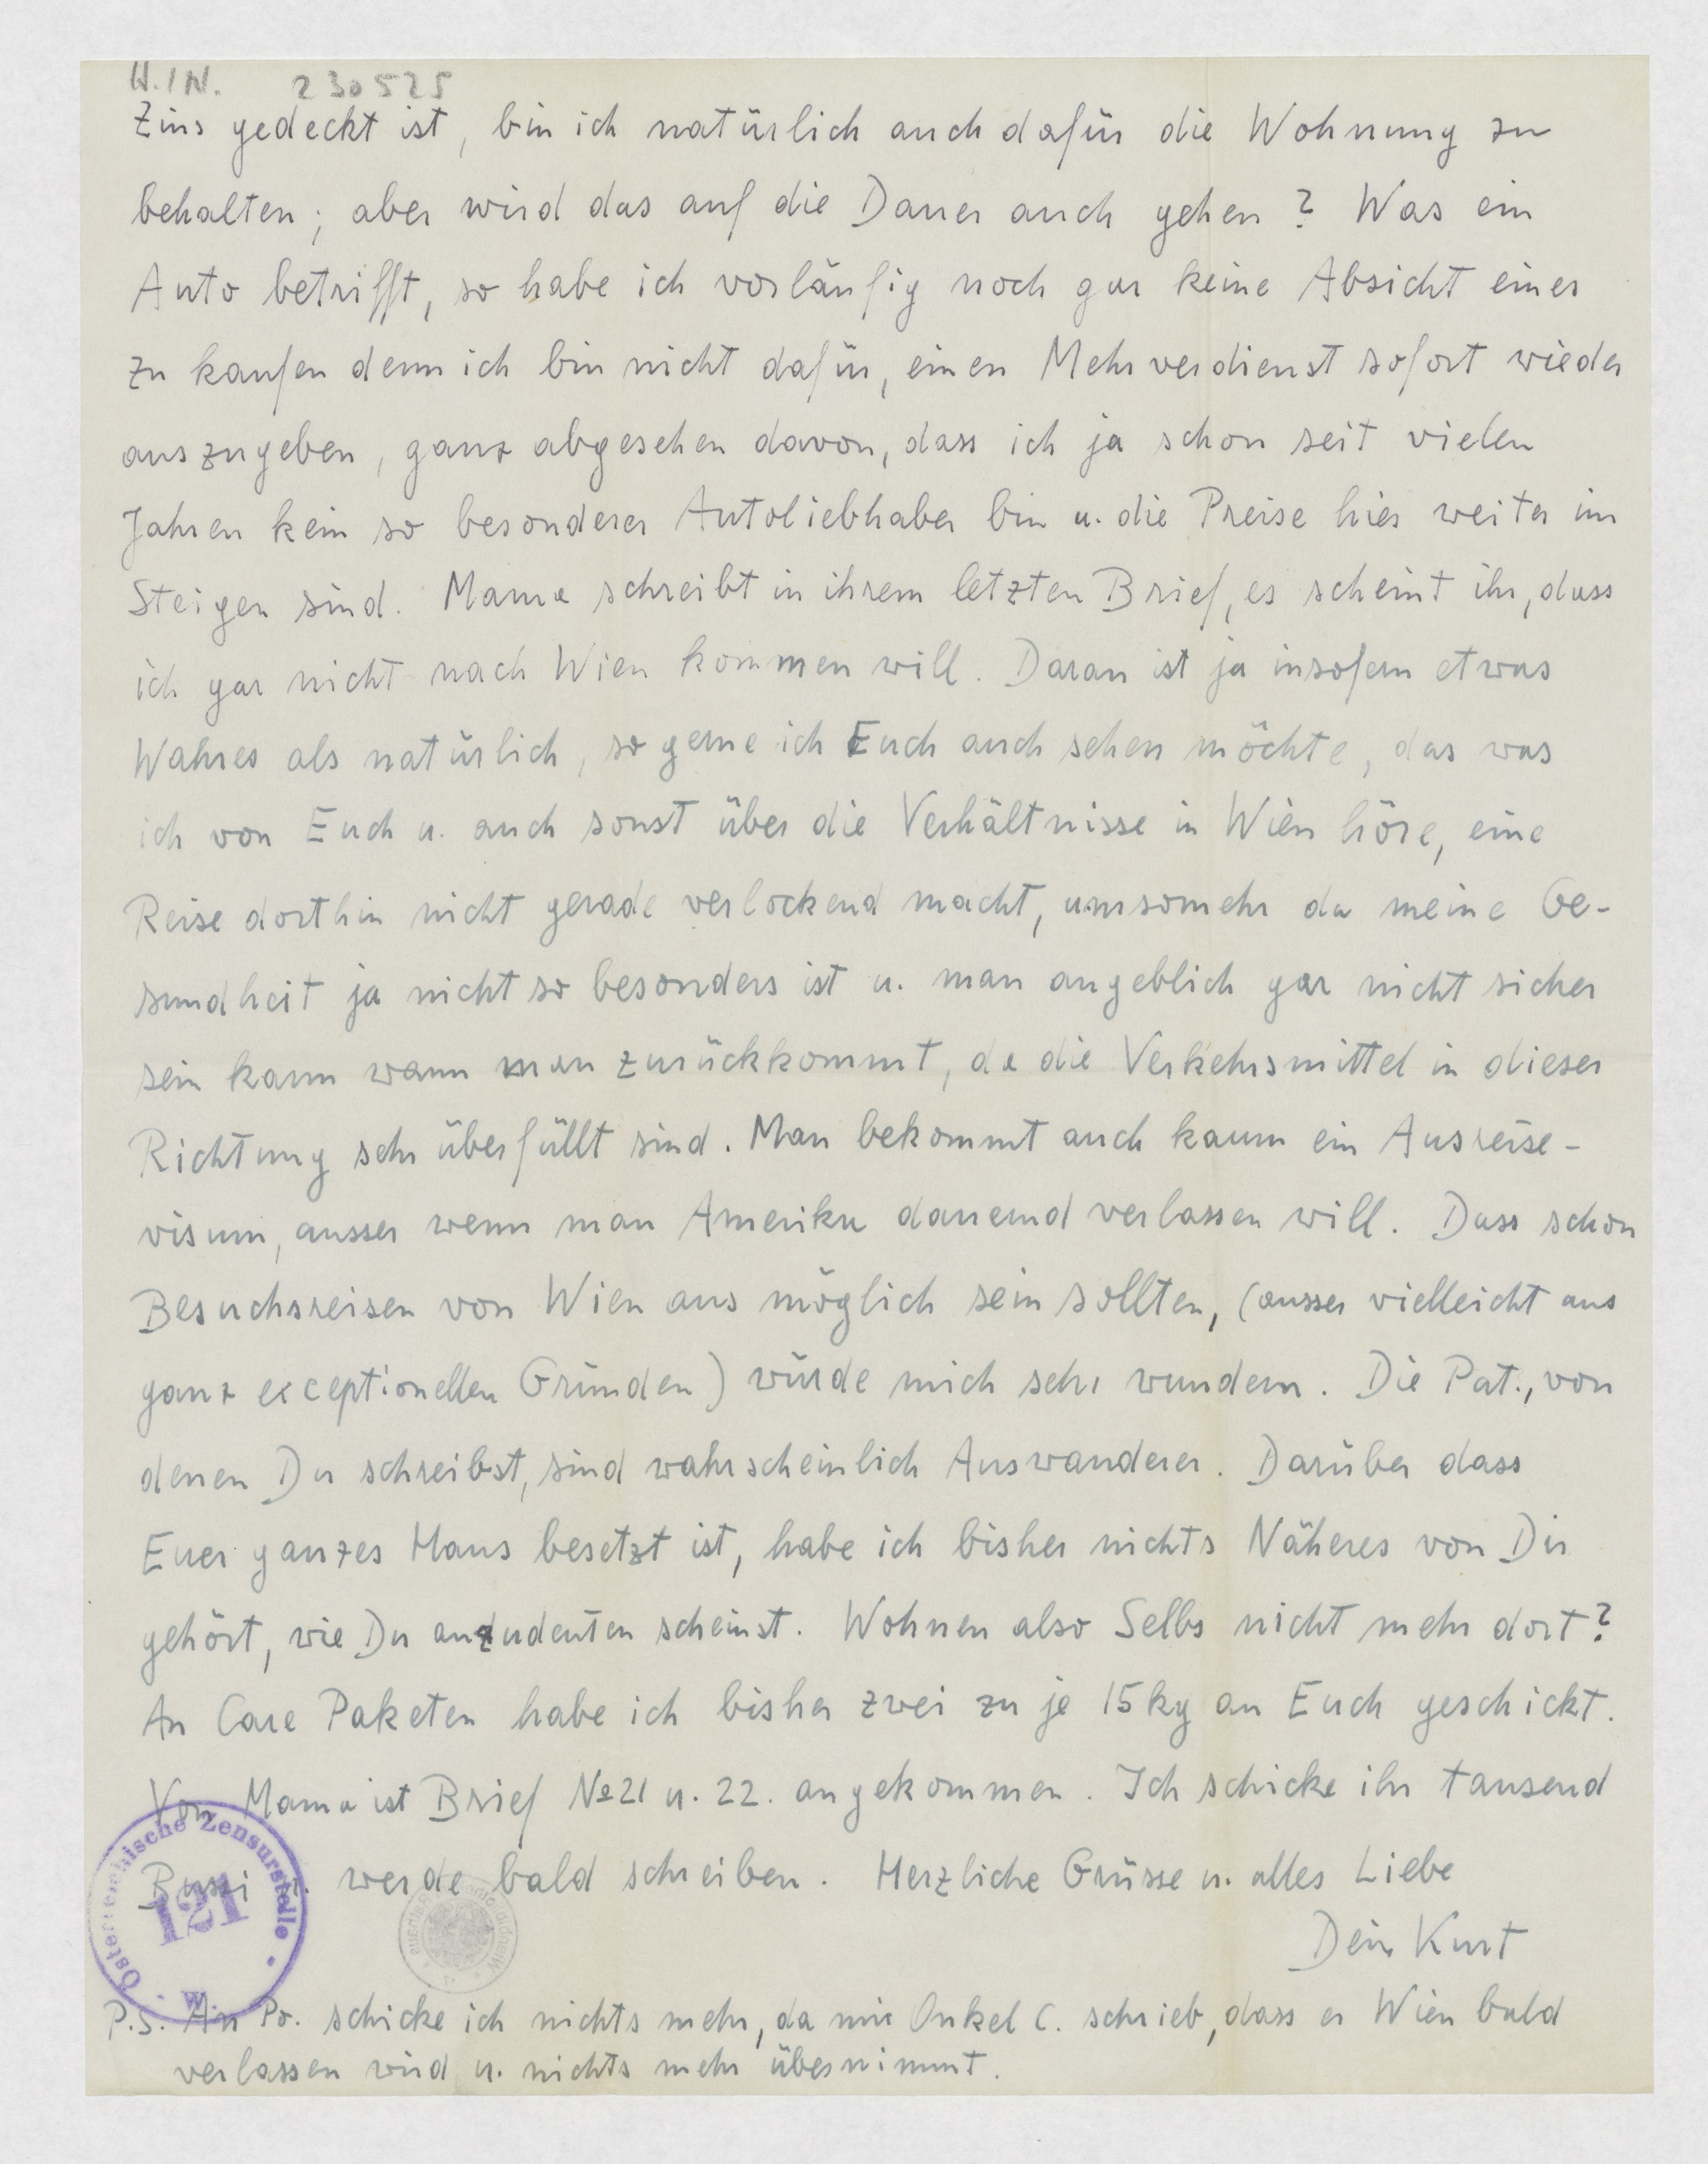 W.IN. 230525
Zins gedeckt ist, bin ich natürlich auch dafür die Wohnung zu
behalten; aber wird das auf die Dauer auch gehen? Was ein
Auto betrifft, so habe ich vorläufig noch gar keine Absicht eines
zu kaufen denn ich bin nicht dafür, einen Mehrverdienst sofort wieder
auszugeben, ganz abgesehen davon, dass ich ja schon seit vielen
Jahren kein so besonderer Autoliebhaber bin u. die Preise hier weiter im
Steigen sind. Mama schreibt in ihrem letzten Brief, es scheint ihr, dass
ich gar nicht nach Wien kommen will. Daran ist ja insofern etwas
Wahres als natürlich, so gerne ich Euch auch sehen möchte, das was
ich von Euch u. auch sonst über die Verhältnisse in Wien höre, eine
Reise dorthin nicht gerade verlockend macht, umsomehr da meine Ge-
sundheit ja nicht so besonders ist u. man angeblich gar nicht sicher
sein kann wann man zurückkommt, da die Verkehrsmittel in dieser
Richtung sehr überfüllt sind. Man bekommt auch kaum ein Ausreise-
visum, ausser wenn man Amerika dauernd verlassen will. Dass schon
Besuchsreisen von Wien aus möglich sein sollten, (ausser vielleicht aus
ganz exceptionellen Gründen) würde mich sehr wundern. Die Pat., von
denen Du schreibst, sind wahrscheinlich Auswanderer. Darüber dass
Euer ganzes Haus besetzt ist, habe ich bisher nichts Näheres von Dir
gehört, wie Du anzudeuten scheinst. Wohnen also Selbs nicht mehr dort?
An Care Paketen habe ich bisher zwei zu je 15kg an Euch geschickt.
Von Mama ist Brief №21 u. 22. angekommen. Ich schicke ihr tausend
Bussi u. werde bald schreiben. Herzliche Grüsse u. alles Liebe
Dein Kurt
Österreichische Zensurstelle
121
W.
P.S. An Po. schicke ich nichts mehr, da mir Onkel C. schrieb, dass er Wien bald
verlassen wird u. nichts mehr übernimmt.